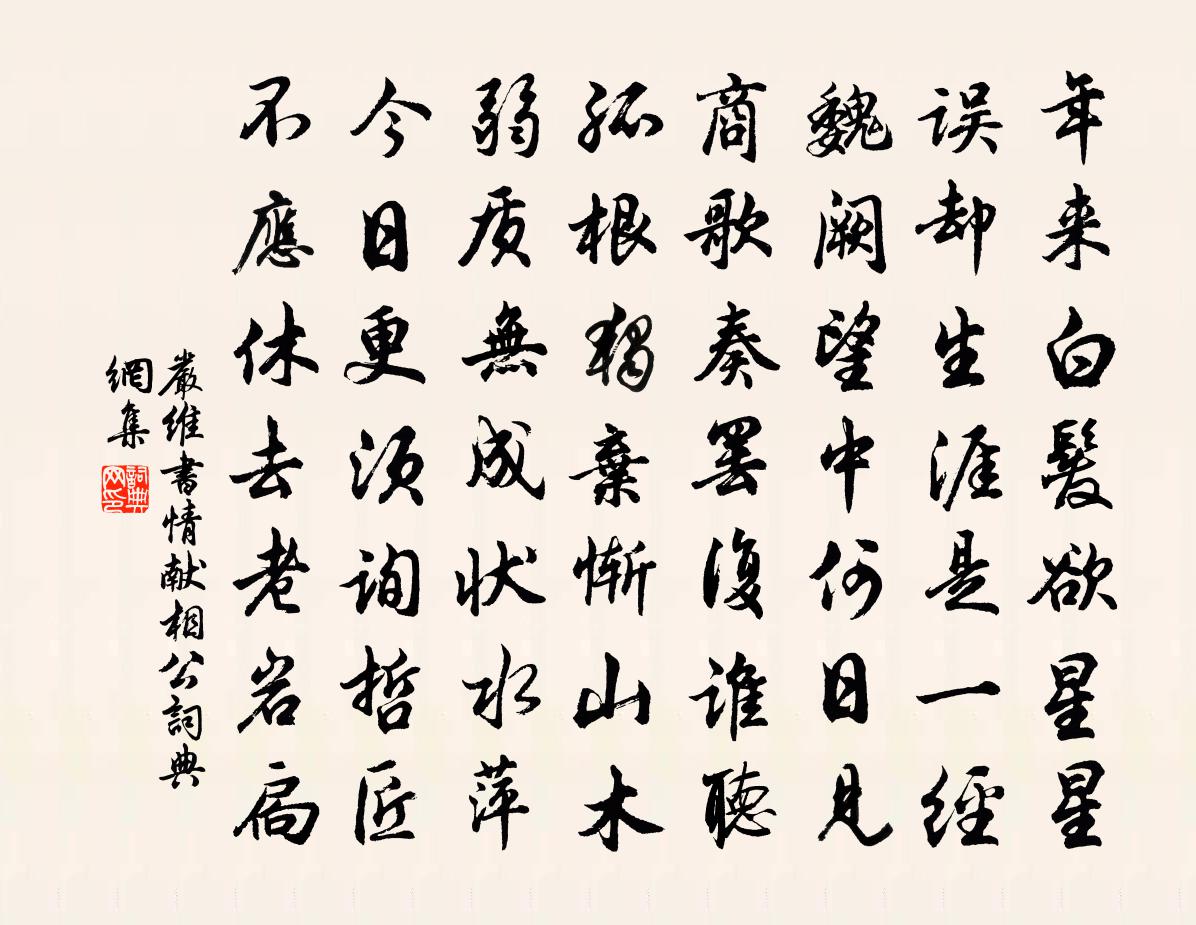 年来白髮欲星星
误却生涯是一經
魏阙望中何日見
商歌奏罢復谁聽
孤根独棄惭山木
弱质無成状水萍
今日更须询哲匠
不應休去老岩扃
嚴维書情献相公詞典
網集
詞典
网印